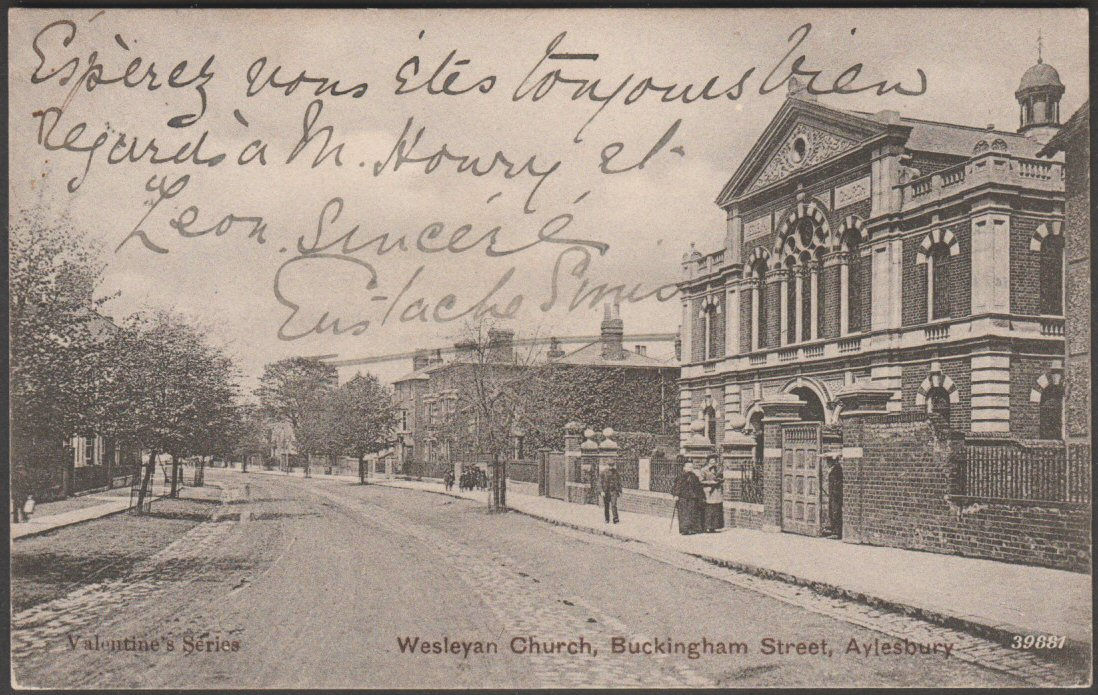 Espèrez vous êtes toujours bien
Regards à M. Howry et
Leon. Sincéré
Eustache
Valentine's Series
Wesleyan Church, Buckingham Street, Aylesbury
39881